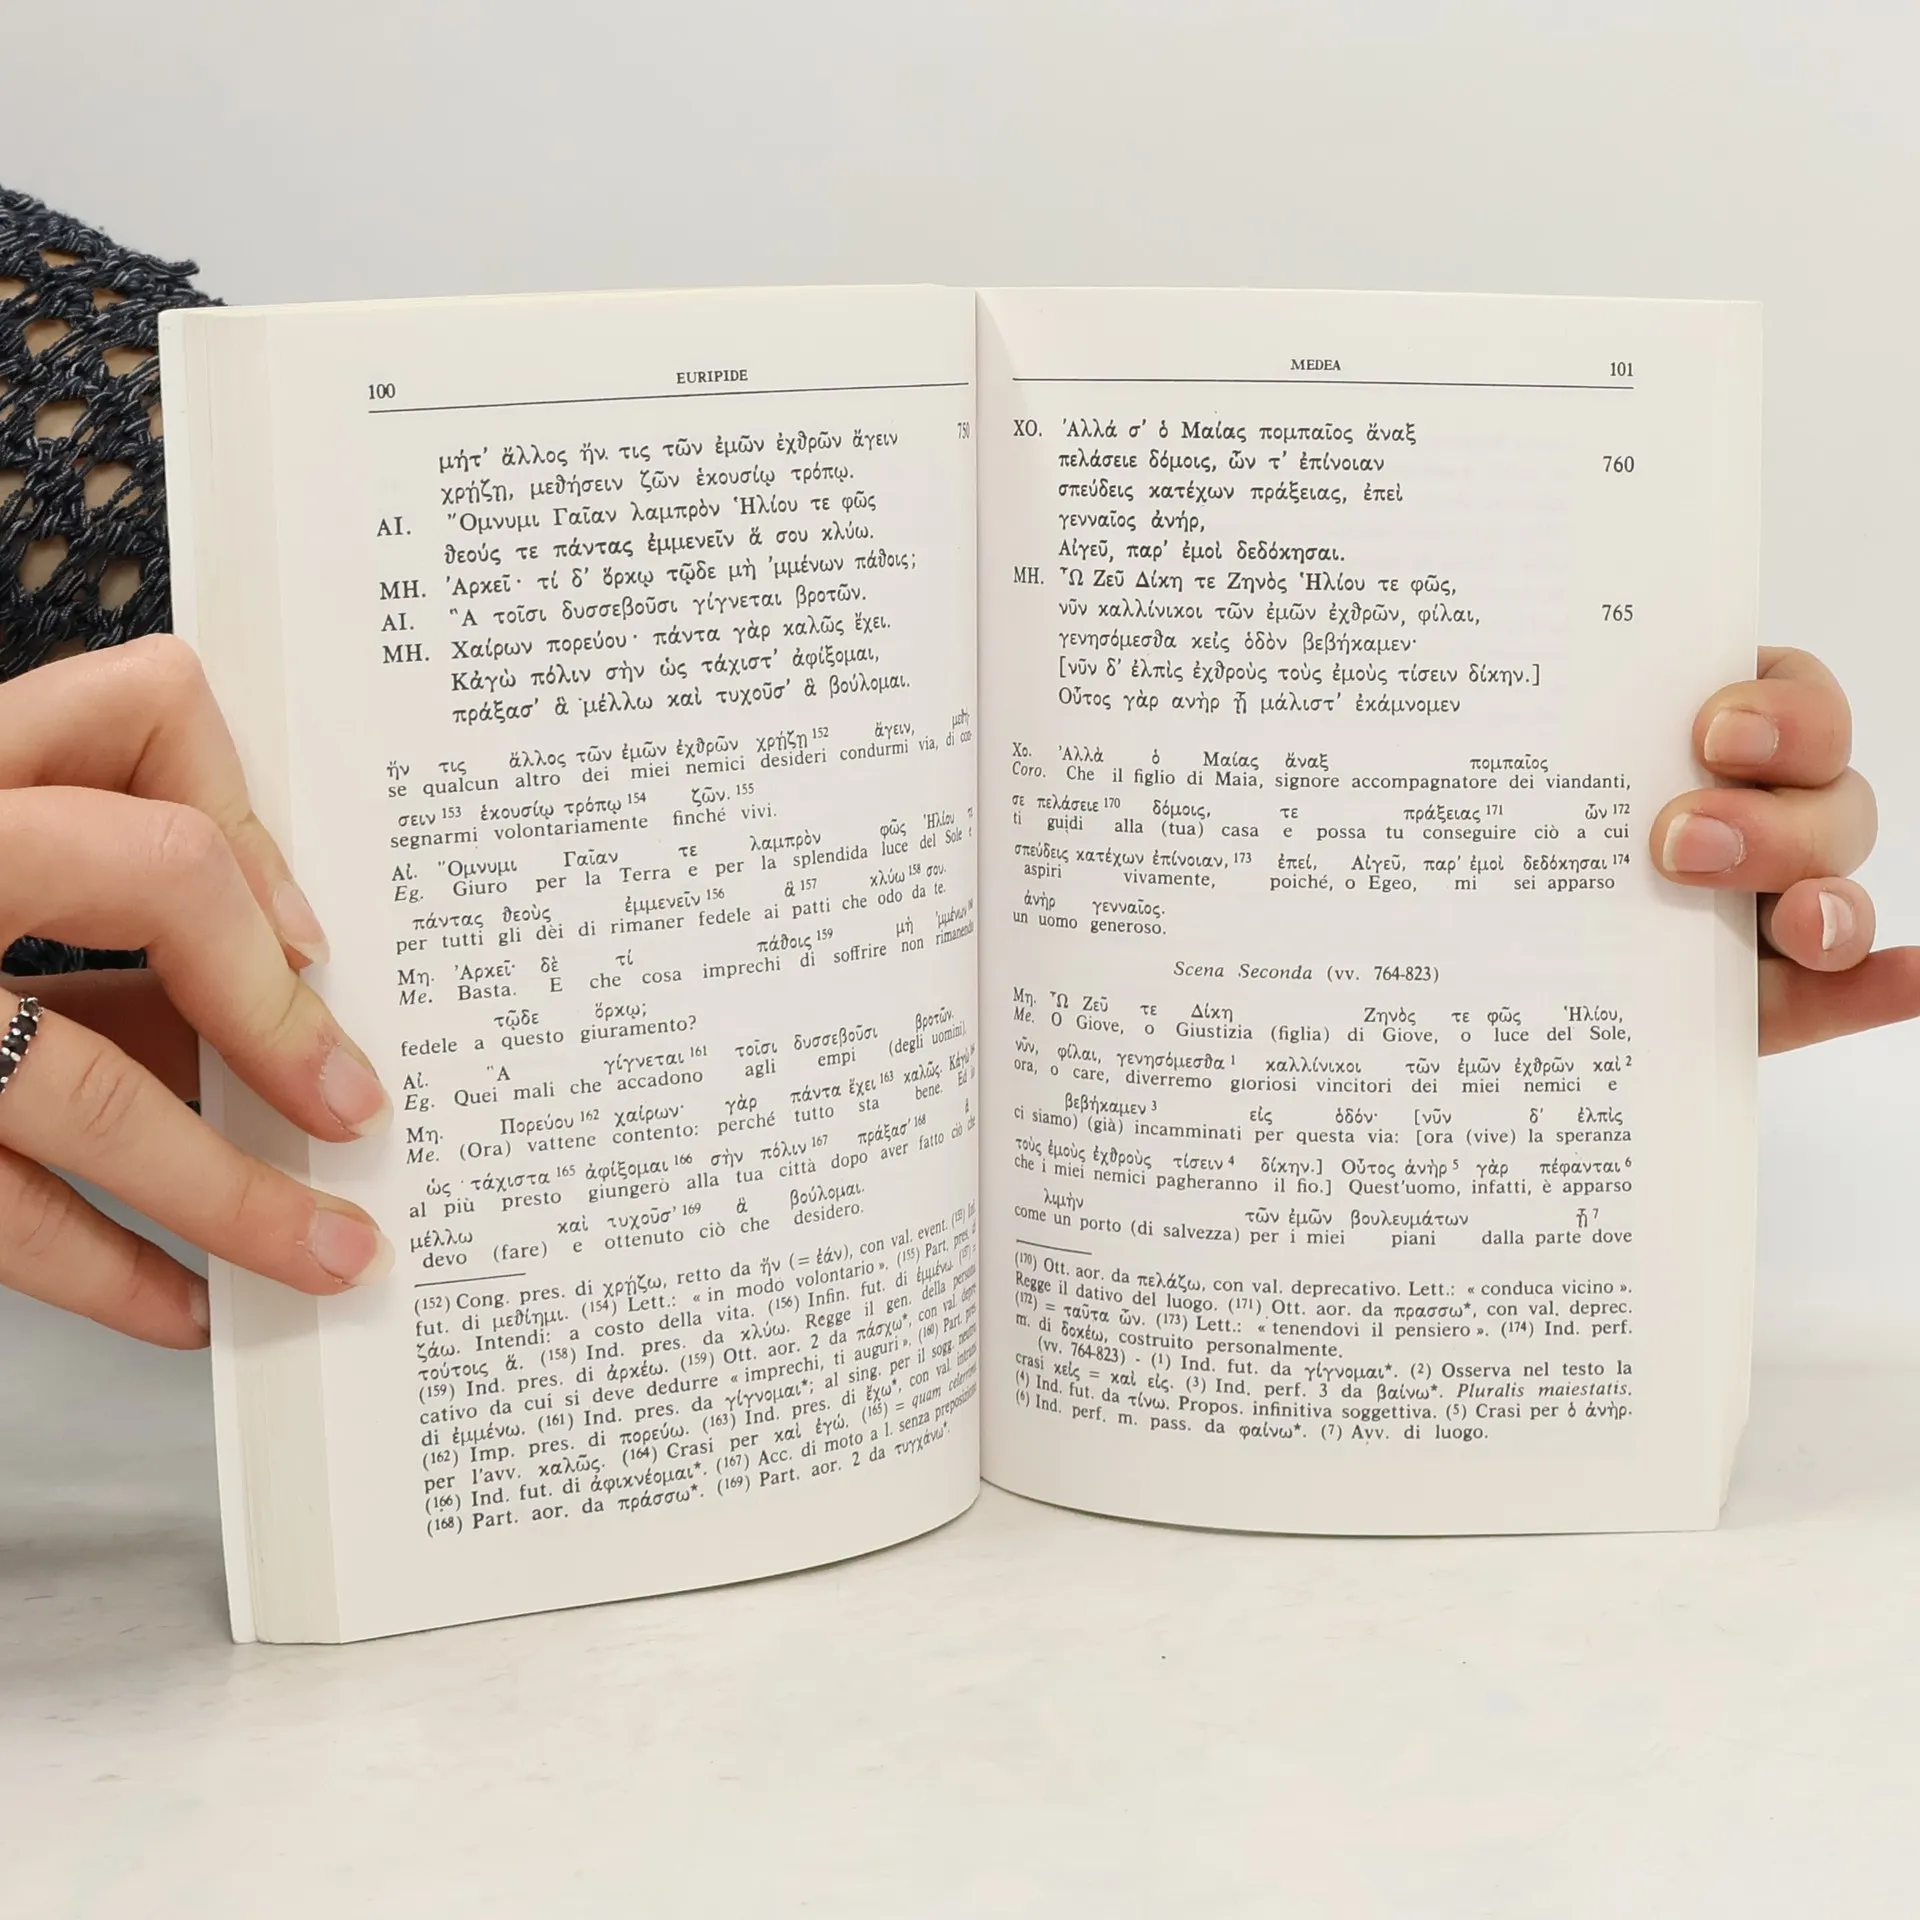 100 EURIPIDE
μήτ' ἄλλος ἤν. τις τῶν ἐμῶν ἐχθρῶν ἄγειν 750
χρῄζῃ, μεθήσειν ζῶν ἑκουσίῳ τρόπῳ.
ΑΙ. Ὄμνυμι Γαῖαν λαμπρὸν Ἡλίου τε φῶς
θεούς τε πάντας ἐμμενεῖν ἅ σου κλύω.
ΜΗ. Ἀρκεῖ· τί δ' ὅρκῳ τῷδε μὴ 'μμένων πάθοις;
ΑΙ. Ἃ τοῖσι δυσσεβοῦσι γίγνεται βροτῶν.
ΜΗ. Χαίρων πορεύου· πάντα γὰρ καλῶς ἔχει.
Κἀγὼ πόλιν σὴν ὡς τάχιστ' ἀφίξομαι,
πράξασ' ἃ μέλλω καὶ τυχοῦσ' ἃ βούλομαι.
ἤν τις ἄλλος τῶν ἐμῶν ἐχθρῶν χρῄζῃ 152 ἄγειν, μεθή-
se qualcun altro dei miei nemici desideri condurmi via, di con-
σειν 153 ἑκουσίῳ τρόπῳ 154 ζῶν. 155
segnarmi volontariamente finché vivi.
Αἰ. Ὄμνυμι Γαῖαν τε λαμπρὸν φῶς Ἡλίου τε
Eg. Giuro per la Terra e per la splendida luce del Sole e
πάντας θεοὺς ἐμμενεῖν 156 ἃ 157 κλύω 158 σου.
per tutti gli dèi di rimaner fedele ai patti che odo da te.
Μη. Ἀρκεῖ· δὲ τί πάθοις 159 μὴ 'μμένων 160
Me. Basta. E che cosa imprechi di soffrire non rimanendo
τῷδε ὅρκῳ;
fedele a questo giuramento?
Αἰ. Ἃ γίγνεται 161 τοῖσι δυσσεβοῦσι βροτῶν.
Eg. Quei mali che accadono agli empi (degli uomini).
Μη. Πορεύου 162 χαίρων· γὰρ πάντα ἔχει 163 καλῶς. Κἀγὼ 164
Me. (Ora) vattene contento: perché tutto sta bene. Ed io
ὡς τάχιστα 165 ἀφίξομαι 166 σὴν πόλιν 167 πράξασ' 168 ἃ
al più presto giungerò alla tua città dopo aver fatto ciò che
μέλλω καὶ τυχοῦσ' 169 ἃ βούλομαι.
devo (fare) e ottenuto ciò che desidero.
(152) Cong. pres. di χρῄζω, retto da ἤν (= ἐάν), con val. event. (153) Inf.
fut. di μεθίημι. (154) Lett.: « in modo volontario ». (155) Part. pres. di
ζάω. Intendi: a costo della vita. (156) Infin. fut. di ἐμμένω. (157) =
τούτοις ἅ. (158) Ind. pres. da κλύω. Regge il gen. della persona
(159) Ind. pres. di ἀρκέω. (159) Ott. aor. 2 da πάσχω*, con val. depre-
cativo da cui si deve dedurre « imprechi, ti auguri ». (160) Part. pres.
di ἐμμένω. (161) Ind. pres. da γίγνομαι*; al sing. per il sogg. neutro
(162) Imp. pres. di πορεύω. (163) Ind. pres. di ἔχω*, con val. intrans.
per l'avv. καλῶς. (164) Crasi per καὶ ἐγώ. (165) = quam celerrime.
(166) Ind. fut. di ἀφικνέομαι*. (167) Acc. di moto a l. senza preposizione
(168) Part. aor. da πράσσω*. (169) Part. aor. 2 da τυγχάνω*.
MEDEA 101
ΧΟ. Ἀλλά σ' ὁ Μαίας πομπαῖος ἄναξ
πελάσειε δόμοις, ὧν τ' ἐπίνοιαν 760
σπεύδεις κατέχων πράξειας, ἐπεὶ
γενναῖος ἀνήρ,
Αἰγεῦ, παρ' ἐμοὶ δεδόκησαι.
ΜΗ. Ὦ Ζεῦ Δίκη τε Ζηνὸς Ἡλίου τε φῶς,
νῦν καλλίνικοι τῶν ἐμῶν ἐχθρῶν, φίλαι, 765
γενησόμεσθα κεἰς ὁδὸν βεβήκαμεν·
[νῦν δ' ἐλπὶς ἐχθροὺς τοὺς ἐμοὺς τίσειν δίκην.]
Οὗτος γὰρ ἀνὴρ ᾗ μάλιστ' ἐκάμνομεν
Χο. Ἀλλὰ ὁ Μαίας ἄναξ πομπαῖος
Coro. Che il figlio di Maia, signore accompagnatore dei viandanti,
σε πελάσειε 170 δόμοις, τε πράξειας 171 ὧν 172
ti guidi alla (tua) casa e possa tu conseguire ciò a cui
σπεύδεις κατέχων ἐπίνοιαν, 173 ἐπεί, Αἰγεῦ, παρ' ἐμοὶ δεδόκησαι 174
aspiri vivamente, poiché, o Egeo, mi sei apparso
ἀνὴρ γενναῖος.
un uomo generoso.
Scena Seconda (vv. 764-823)
Μη. Ὦ Ζεῦ τε Δίκη Ζηνὸς τε φῶς Ἡλίου,
Me. O Giove, o Giustizia (figlia) di Giove, o luce del Sole,
νῦν, φίλαι, γενησόμεσθα 1 καλλίνικοι τῶν ἐμῶν ἐχθρῶν καὶ 2
ora, o care, diverremo gloriosi vincitori dei miei nemici e
βεβήκαμεν 3 εἰς ὁδόν· [νῦν δ' ἐλπὶς
ci siamo) (già) incamminati per questa via: [ora (vive) la speranza
τοὺς ἐμοὺς ἐχθροὺς τίσειν 4 δίκην.] Οὗτος ἀνὴρ 5 γὰρ πέφανται 6
che i miei nemici pagheranno il fio.] Quest'uomo, infatti, è apparso
λιμὴν τῶν ἐμῶν βουλευμάτων ᾗ 7
come un porto (di salvezza) per i miei piani dalla parte dove
(170) Ott. aor. da πελάζω, con val. deprecativo. Lett.: « conduca vicino ».
Regge il dativo del luogo. (171) Ott. aor. da πρασσω*, con val. deprec.
(172) = ταῦτα ὧν. (173) Lett.: « tenendovi il pensiero ». (174) Ind. perf.
m. di δοκέω, costruito personalmente.
(vv. 764-823) - (1) Ind. fut. da γίγνομαι*. (2) Osserva nel testo la
crasi κεἰς = καὶ εἰς. (3) Ind. perf. 3 da βαίνω*. Pluralis maiestatis.
(4) Ind. fut. da τίνω. Propos. infinitiva soggettiva. (5) Crasi per ὁ ἀνὴρ.
(6) Ind. perf. m. pass. da φαίνω*. (7) Avv. di luogo.